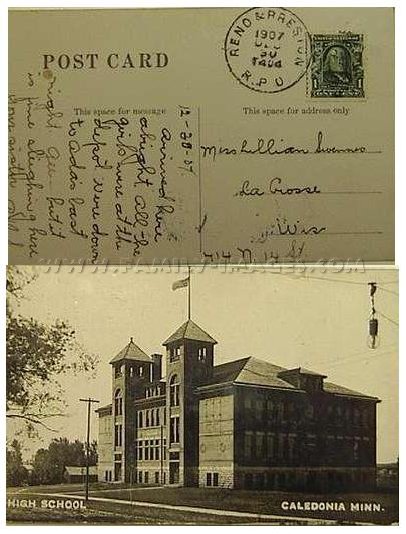 POST CARD
RENO & PRESTON
1907
DEC
30
R.P.O
This space for message
This space for address only
12-28-07.
Arrived here
alright all the
girls were at the
depot. were down
to Adas last
night Gee but it
is fine sleighing here
Miss Lillian
La Crosse
Wis
714 N. 14 St
WWW.FAMILY-IMAGES.COM
HIGH SCHOOL
CALEDONIA MINN.